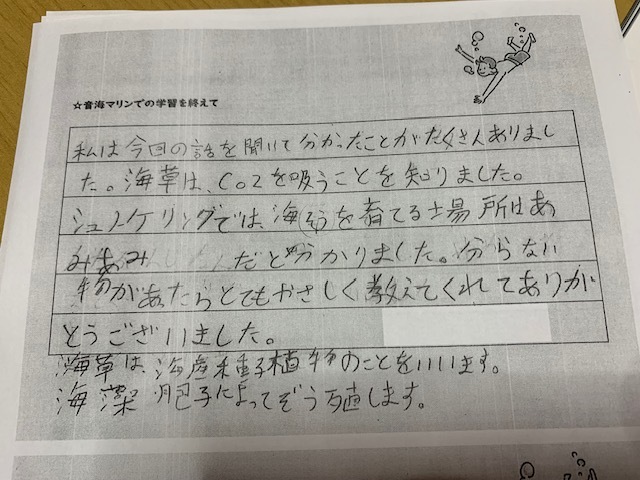 ☆音海マリンでの学習を終えて
私は今回の話を聞いて分かったことがたくさんありまし
た。海草は、CO2を吸うことを知りました。
シュノーケリングでは、海
を育てる場所はあ
みあみ だと分かりました。分らない
物があたらとてもやさしく教えてくれてありが
とうございました。
海草は、海産種子植物のことをいいます。
海藻 胞子によってぞう殖します。